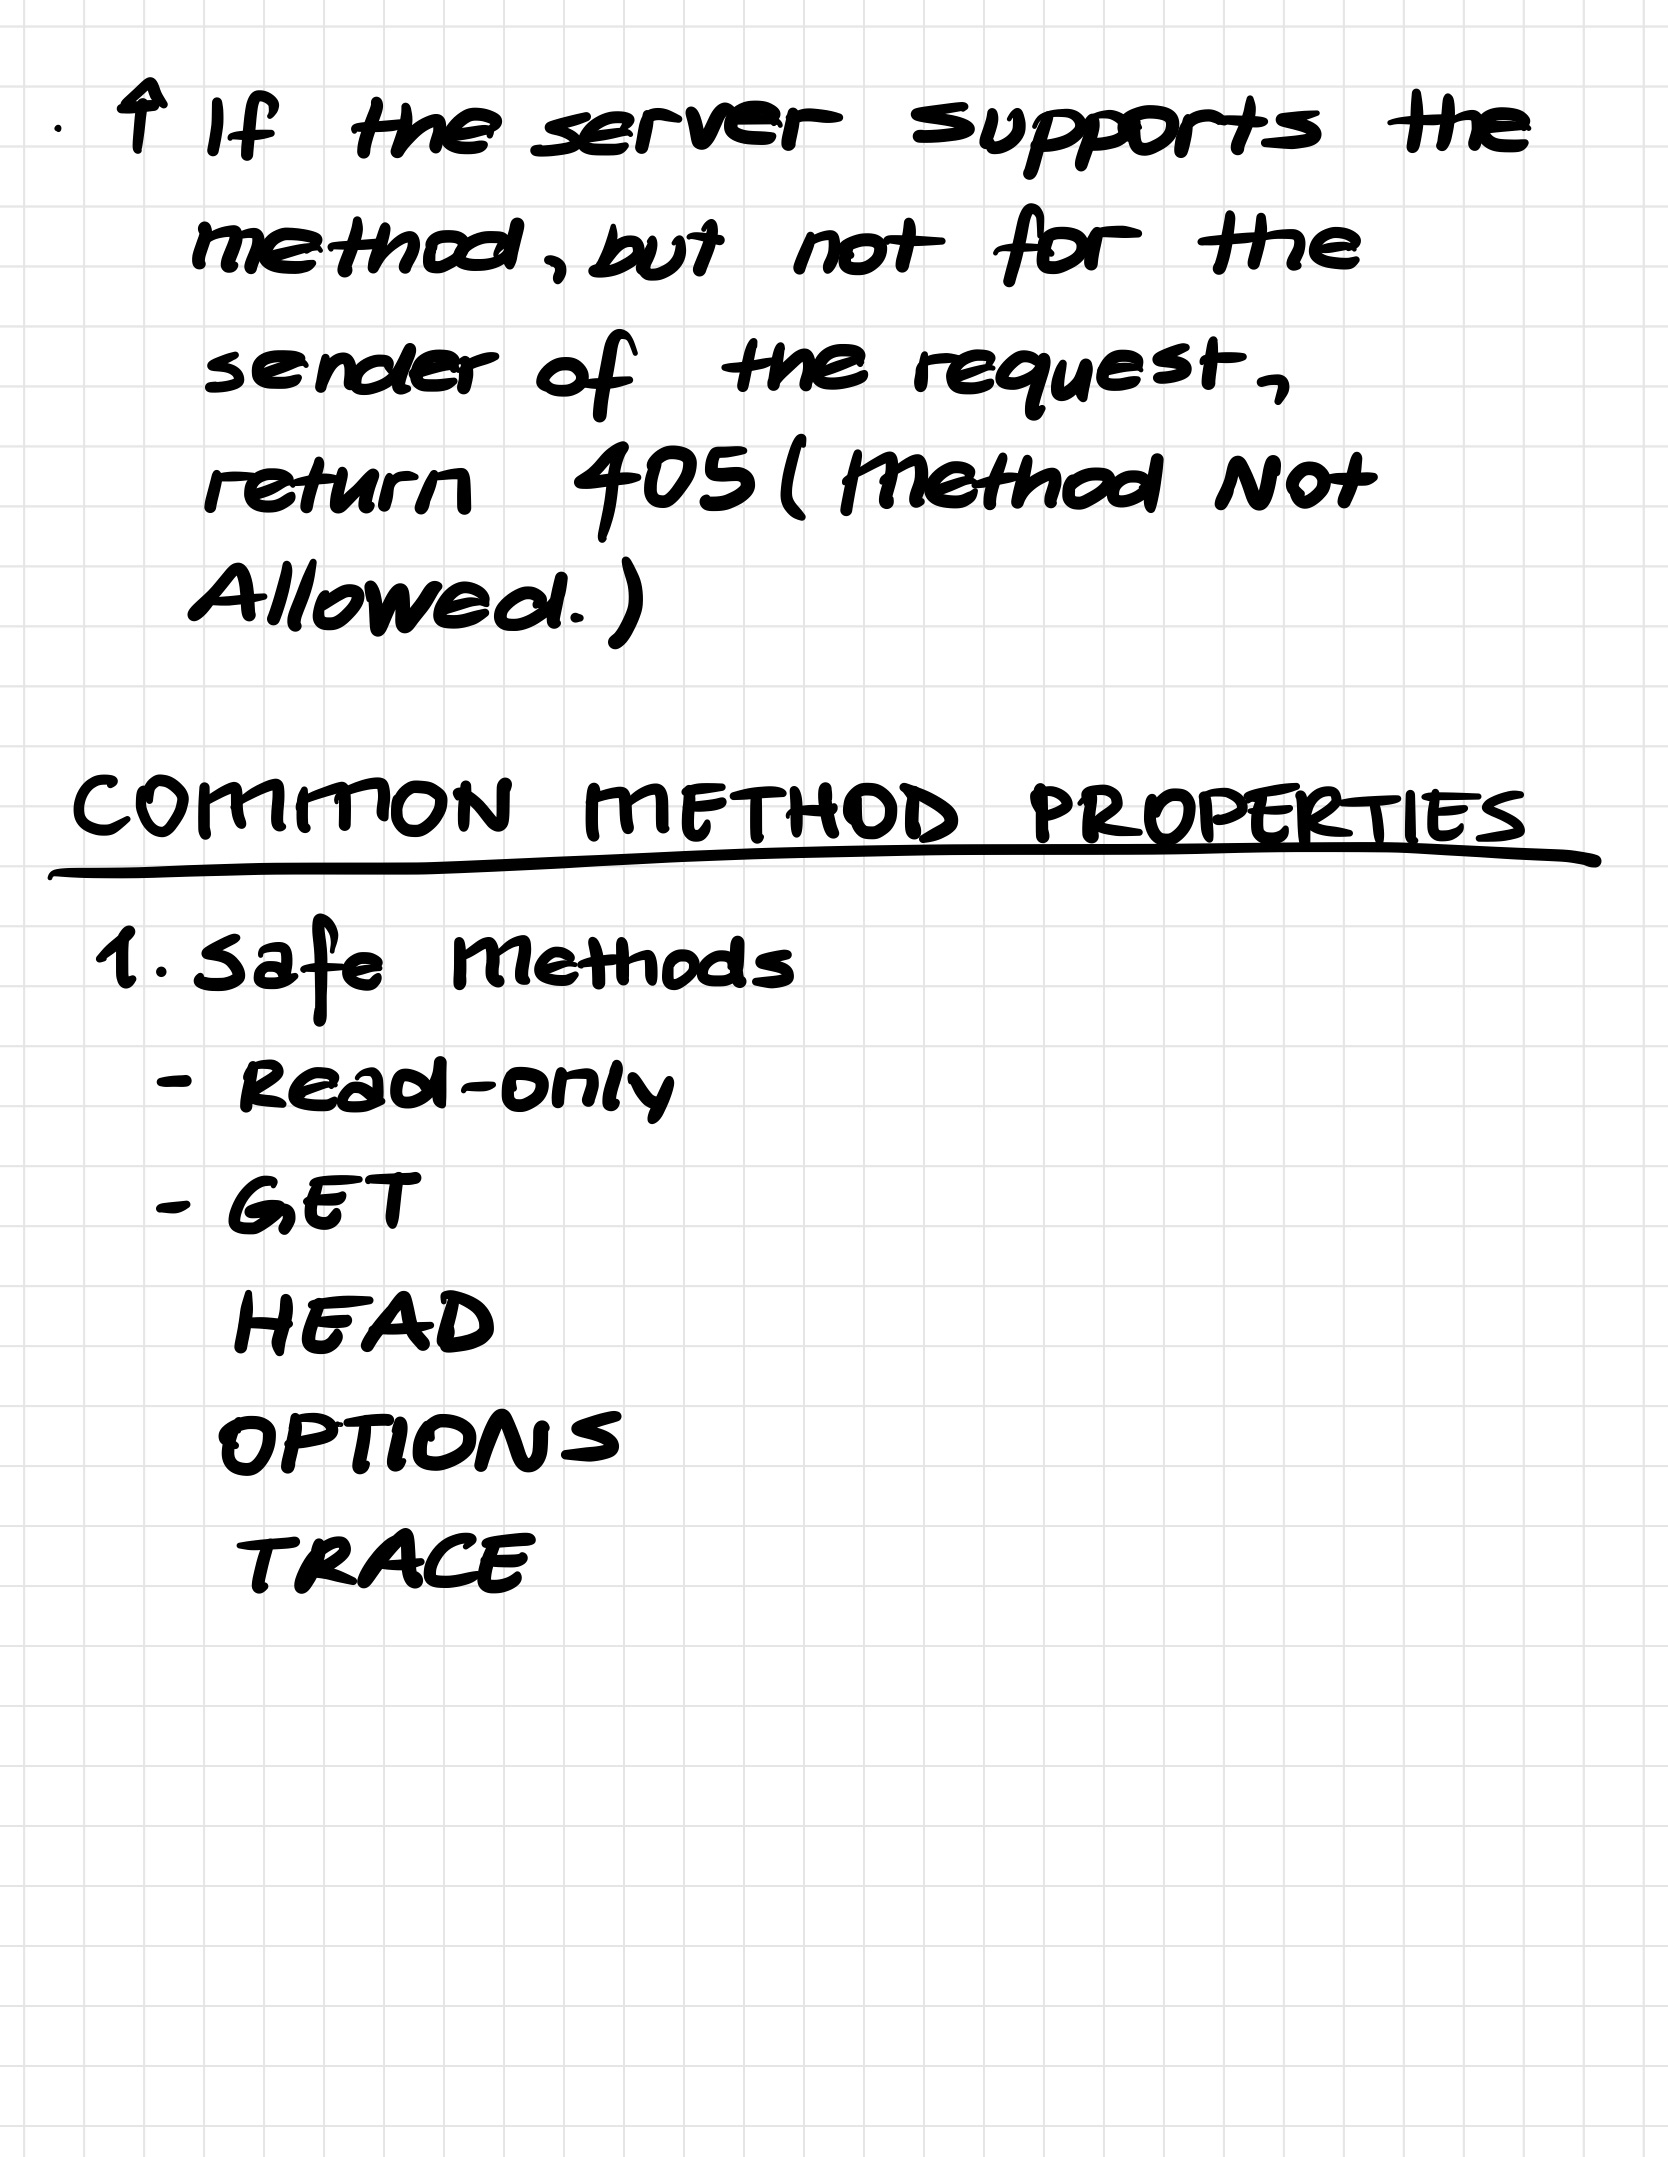 ↑ If the server supports the
method, but not for the
sender of the request,
return 405 (Method Not
Allowed.)
COMMON METHOD PROPERTIES
1. Safe Methods
- Read-only
- GET
HEAD
OPTIONS
TRACE